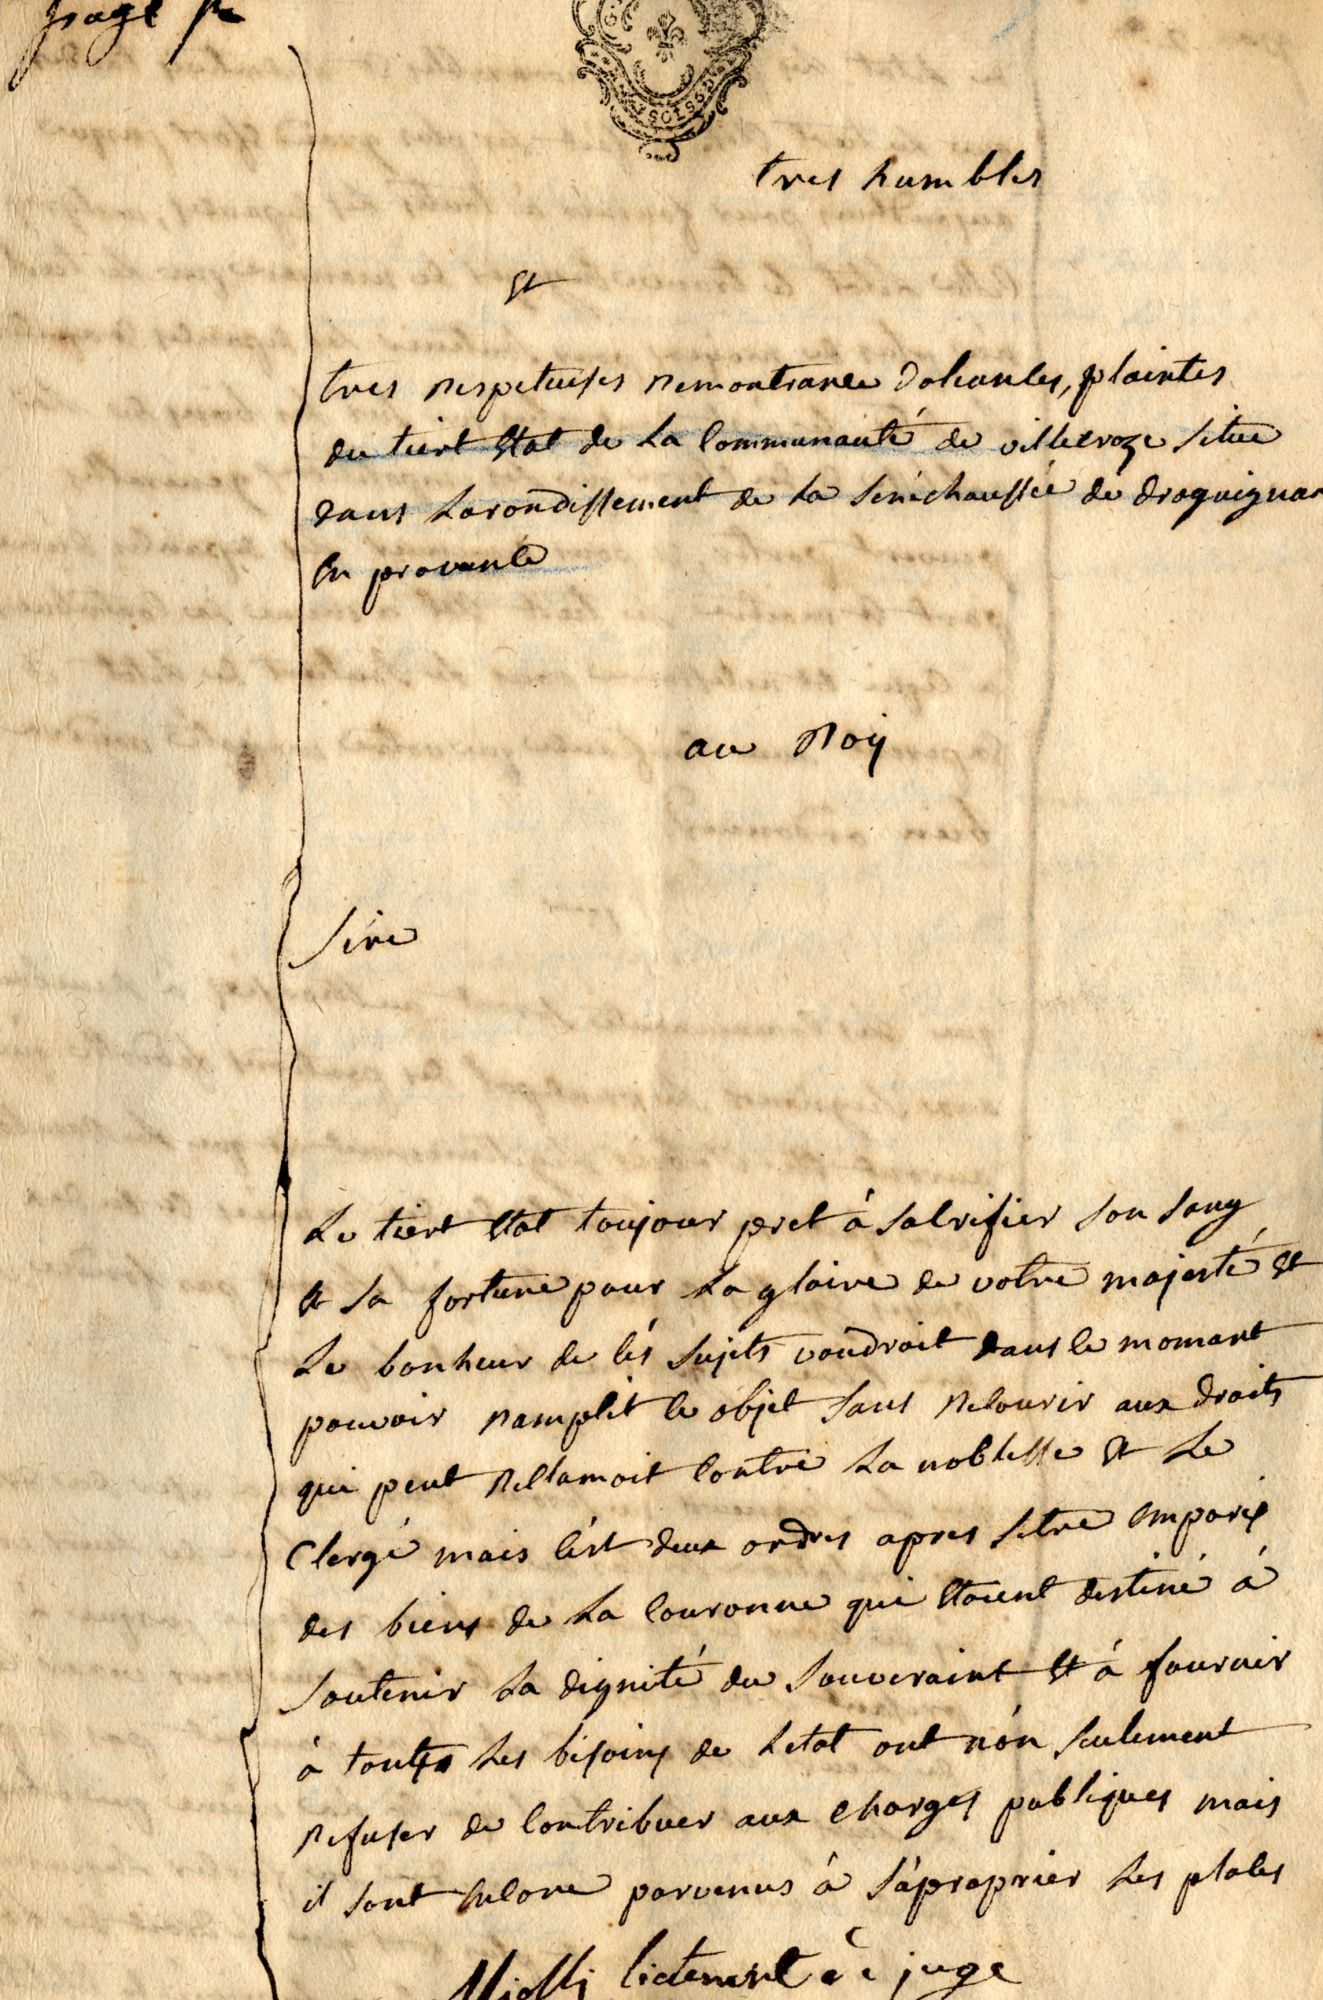 page 1re
tres humbles
et
tres respetuises remontrance doleances, plaintes
du tiert Etat de La Communauté de villecroze situe
dans Larondissement de La senéchaussée de draguignan
En provence
au Roy
Sire
Le tiert Etat toujour pret á sacrifier son sang
et sa fortune pour La gloire de votre majesté et
Le bonheur de cés sujets voudroit dans le momant
pouvoir ramplit ce objet sans recourir aux droits
qui peut reclamoit contre La noblesse et Le
Clergé mais cést deux ordres apres setre emparés
des biens de La couronne qui Etoient destiné á
soutenir La dignité du souveraint et á fournir
á toutes Les besoins de Letat ont nón seulement
refuser de contribuer aux charges publiques mais
il sont encore parvenus á sápproprier Les places
lieutenent de juge